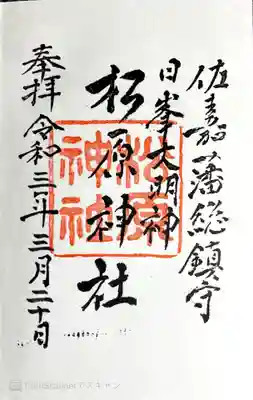 佐嘉藩総鎮守
日峯大明神
松原神社
松原神社
奉拝 令和三年三月二十日